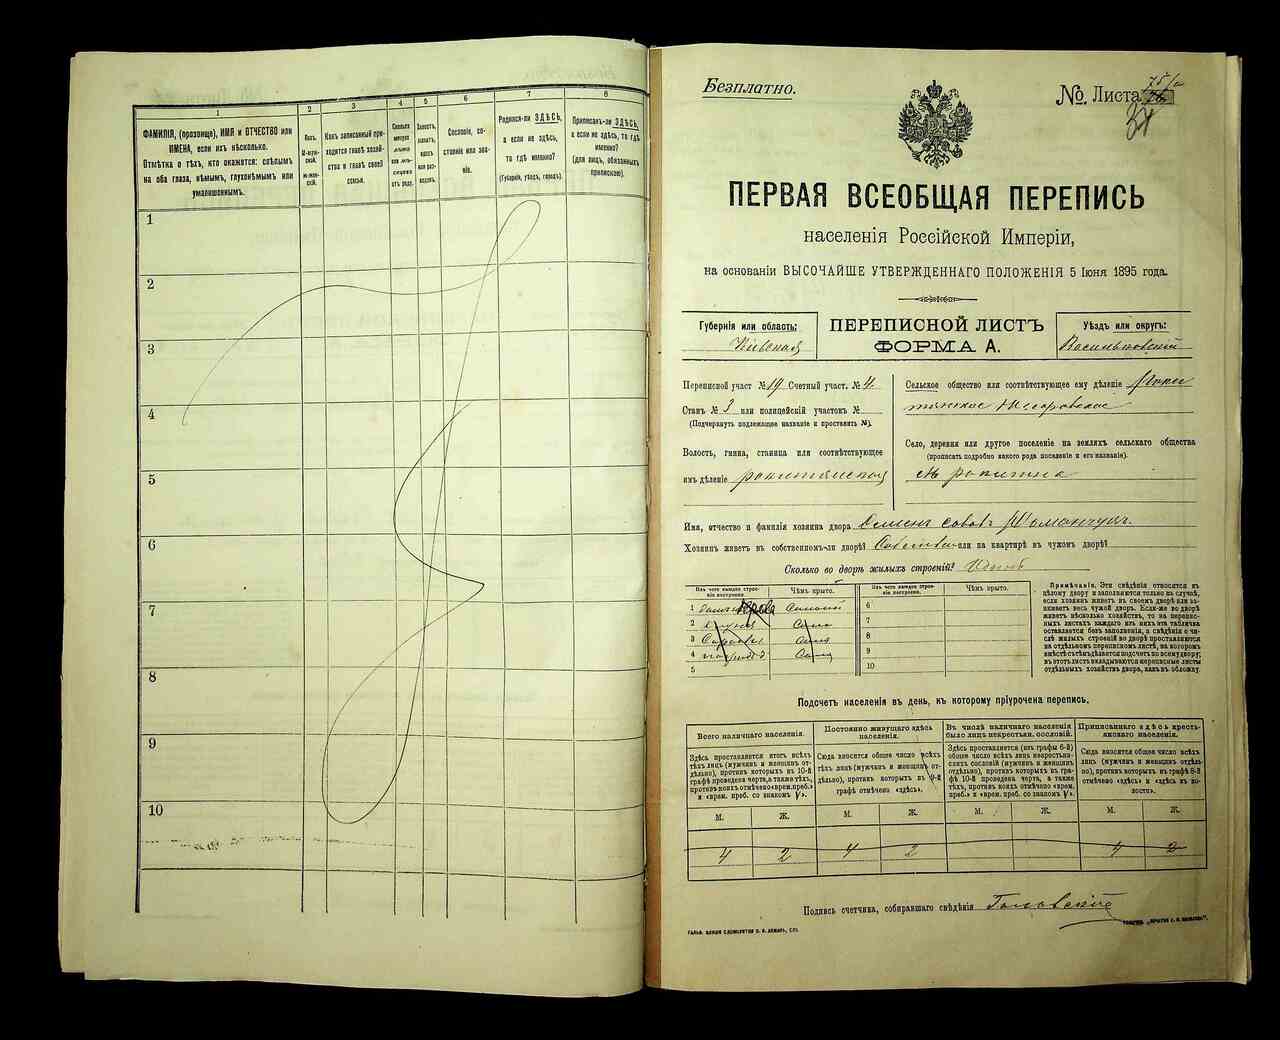 1
2
3
4
5
6
7
8
ФАМИЛІЯ, (прозвище), ИМЯ и ОТЧЕСТВО или
ИМЕНА, если ихъ нѣсколько.
Отмѣтка о тѣхъ, кто окажется: слѣпымъ
на оба глаза, нѣмымъ, глухонѣмымъ или
умалишеннымъ.
Полъ.
М-муж-
ской.
Ж-жен-
скій.
Какъ записанный при-
ходится главѣ хозяй-
ства и главѣ своей
семьи.
Сколько
минуло
лѣтъ
или мѣ-
сяцевъ
отъ роду.
Холостъ,
женатъ,
вдовъ
или раз-
веденъ.
Сословіе, со-
стояніе или зва-
ніе.
Родился-ли ЗДѢСЬ,
а если не здѣсь,
то гдѣ именно?
(Губернія, уѣздъ, городъ).
Приписанъ-ли ЗДѢСЬ,
а если не здѣсь, то гдѣ
именно?
(для лицъ, обязанныхъ
припискою).
1
2
3
4
5
6
7
8
9
10
Безплатно.
№. Листа
ПЕРВАЯ ВСЕОБЩАЯ ПЕРЕПИСЬ
населенія Россійской Имперіи,
на основаніи ВЫСОЧАЙШЕ УТВЕРЖДЕННАГО ПОЛОЖЕНІЯ 5 Іюня 1895 года.
Губернія или область:
Кіевская
ПЕРЕПИСНОЙ ЛИСТЪ
ФОРМА А.
Уѣздъ или округъ:
Васильковскій
Переписной участ №19 Счетный участ. №4.
Станъ №3 или полицейскій участокъ №
(Подчеркнуть подлежащее названіе и проставить №).
Волость, гмина, станица или соотвѣтствующее
имъ дѣленіе
Сельское общество или соотвѣтствующее ему дѣленіе
Село, деревня или другое поселеніе на земляхъ сельскаго общества
(прописать подробно какого рода поселеніе и его названіе).
Имя, отчество и фамилія хозяина двора
Хозяинъ живетъ въ собственномъ-ли дворѣ? или на квартирѣ въ чужомъ дворѣ?
Сколько во дворѣ жилыхъ строеній? Одинъ
Изъ чего каждое строе-
ніе построено.
Чѣмъ крыто.
1
2
3
4
5
Изъ чего каждое строе-
ніе построено.
Чѣмъ крыто.
6
7
8
9
10
Примѣчаніе. Эти свѣдѣнія относятся къ
цѣлому двору и заполняются только въ случаѣ,
если хозяинъ живетъ въ своемъ дворѣ или за-
нимаетъ весь чужой дворъ. Если-же во дворѣ
живетъ нѣсколько хозяйствъ, то на перепис-
ныхъ листахъ каждаго изъ нихъ эта табличка
оставляется безъ заполненія, а свѣдѣнія о чи-
слѣ жилыхъ строеній во дворѣ проставляются
на отдѣльномъ переписномъ листѣ, на которомъ
вмѣстѣ съ тѣмъ дѣлается подсчетъ по всему двору;
въ этотъ листъ вкладываются переписные листы
отдѣльныхъ хозяйствъ двора, какъ въ обложку.
Подсчетъ населенія въ день, къ которому пріурочена перепись.
Всего наличнаго населенія.
Постоянно живущаго здѣсь
населенія.
Въ числѣ наличнаго населенія
было лицъ некрестьян. сословій.
Приписаннаго здѣсь кресть-
янскаго населенія.
Здѣсь проставляется итогъ всѣхъ
тѣхъ лицъ (мужчинъ и женщинъ от-
дѣльно), противъ которыхъ въ 10-й
графѣ проведена черта, а также тѣхъ,
противъ коихъ отмѣчено «врем. преб.»
и «врем. преб. со знакомъ V».
Сюда вносится общее число всѣхъ
тѣхъ лицъ (мужчинъ и женщинъ от-
дѣльно), противъ которыхъ въ 9-й
графѣ отмѣчено «здѣсь».
Здѣсь проставляется (изъ графы 6-й)
общее число всѣхъ лицъ некрестьян-
скихъ сословій (мужчинъ и женщинъ
отдѣльно), противъ которыхъ въ гра-
фѣ 10-й проведена черта, а также
тѣхъ, противъ коихъ отмѣчено «врем.
преб.» и «врем. преб. со знакомъ V».
Сюда вносится общее число всѣхъ
лицъ (мужчинъ и женщинъ отдѣль-
но), противъ которыхъ въ графѣ 8-й
отмѣчено «здѣсь» и «здѣсь въ во-
лости».
М. Ж. М. Ж. М. Ж. М. Ж.
4 2 4 2 4 2
Подпись счетчика, собиравшаго свѣдѣнія